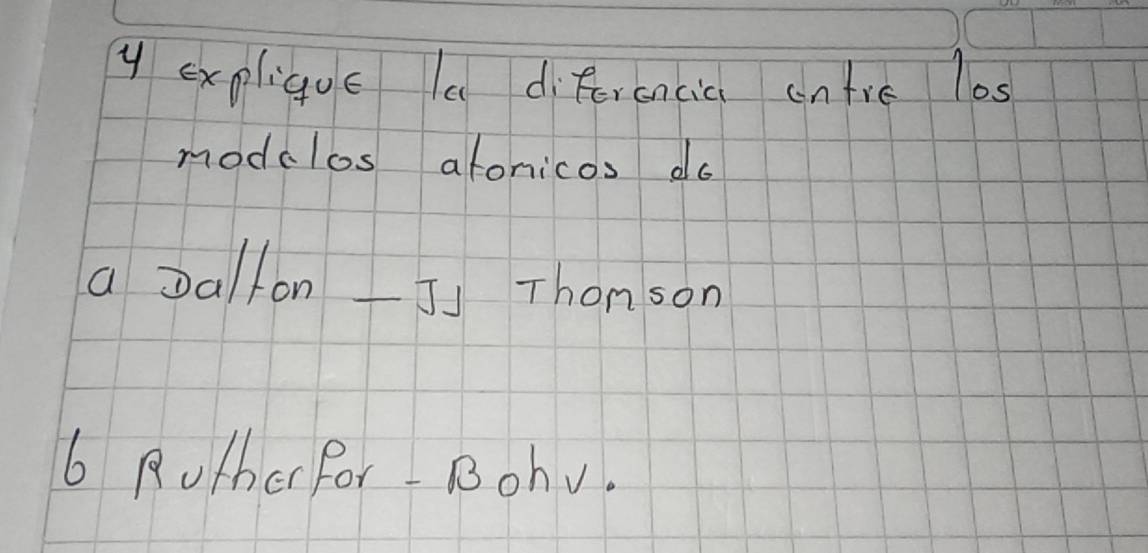 4 explique la diferencia entre los
modelos atomicos de
a Dalton - JJ Thomson
b Rutherfor - Bohr.